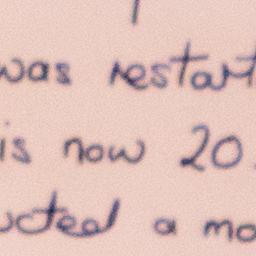 was restart
is now 20
ucted a mo